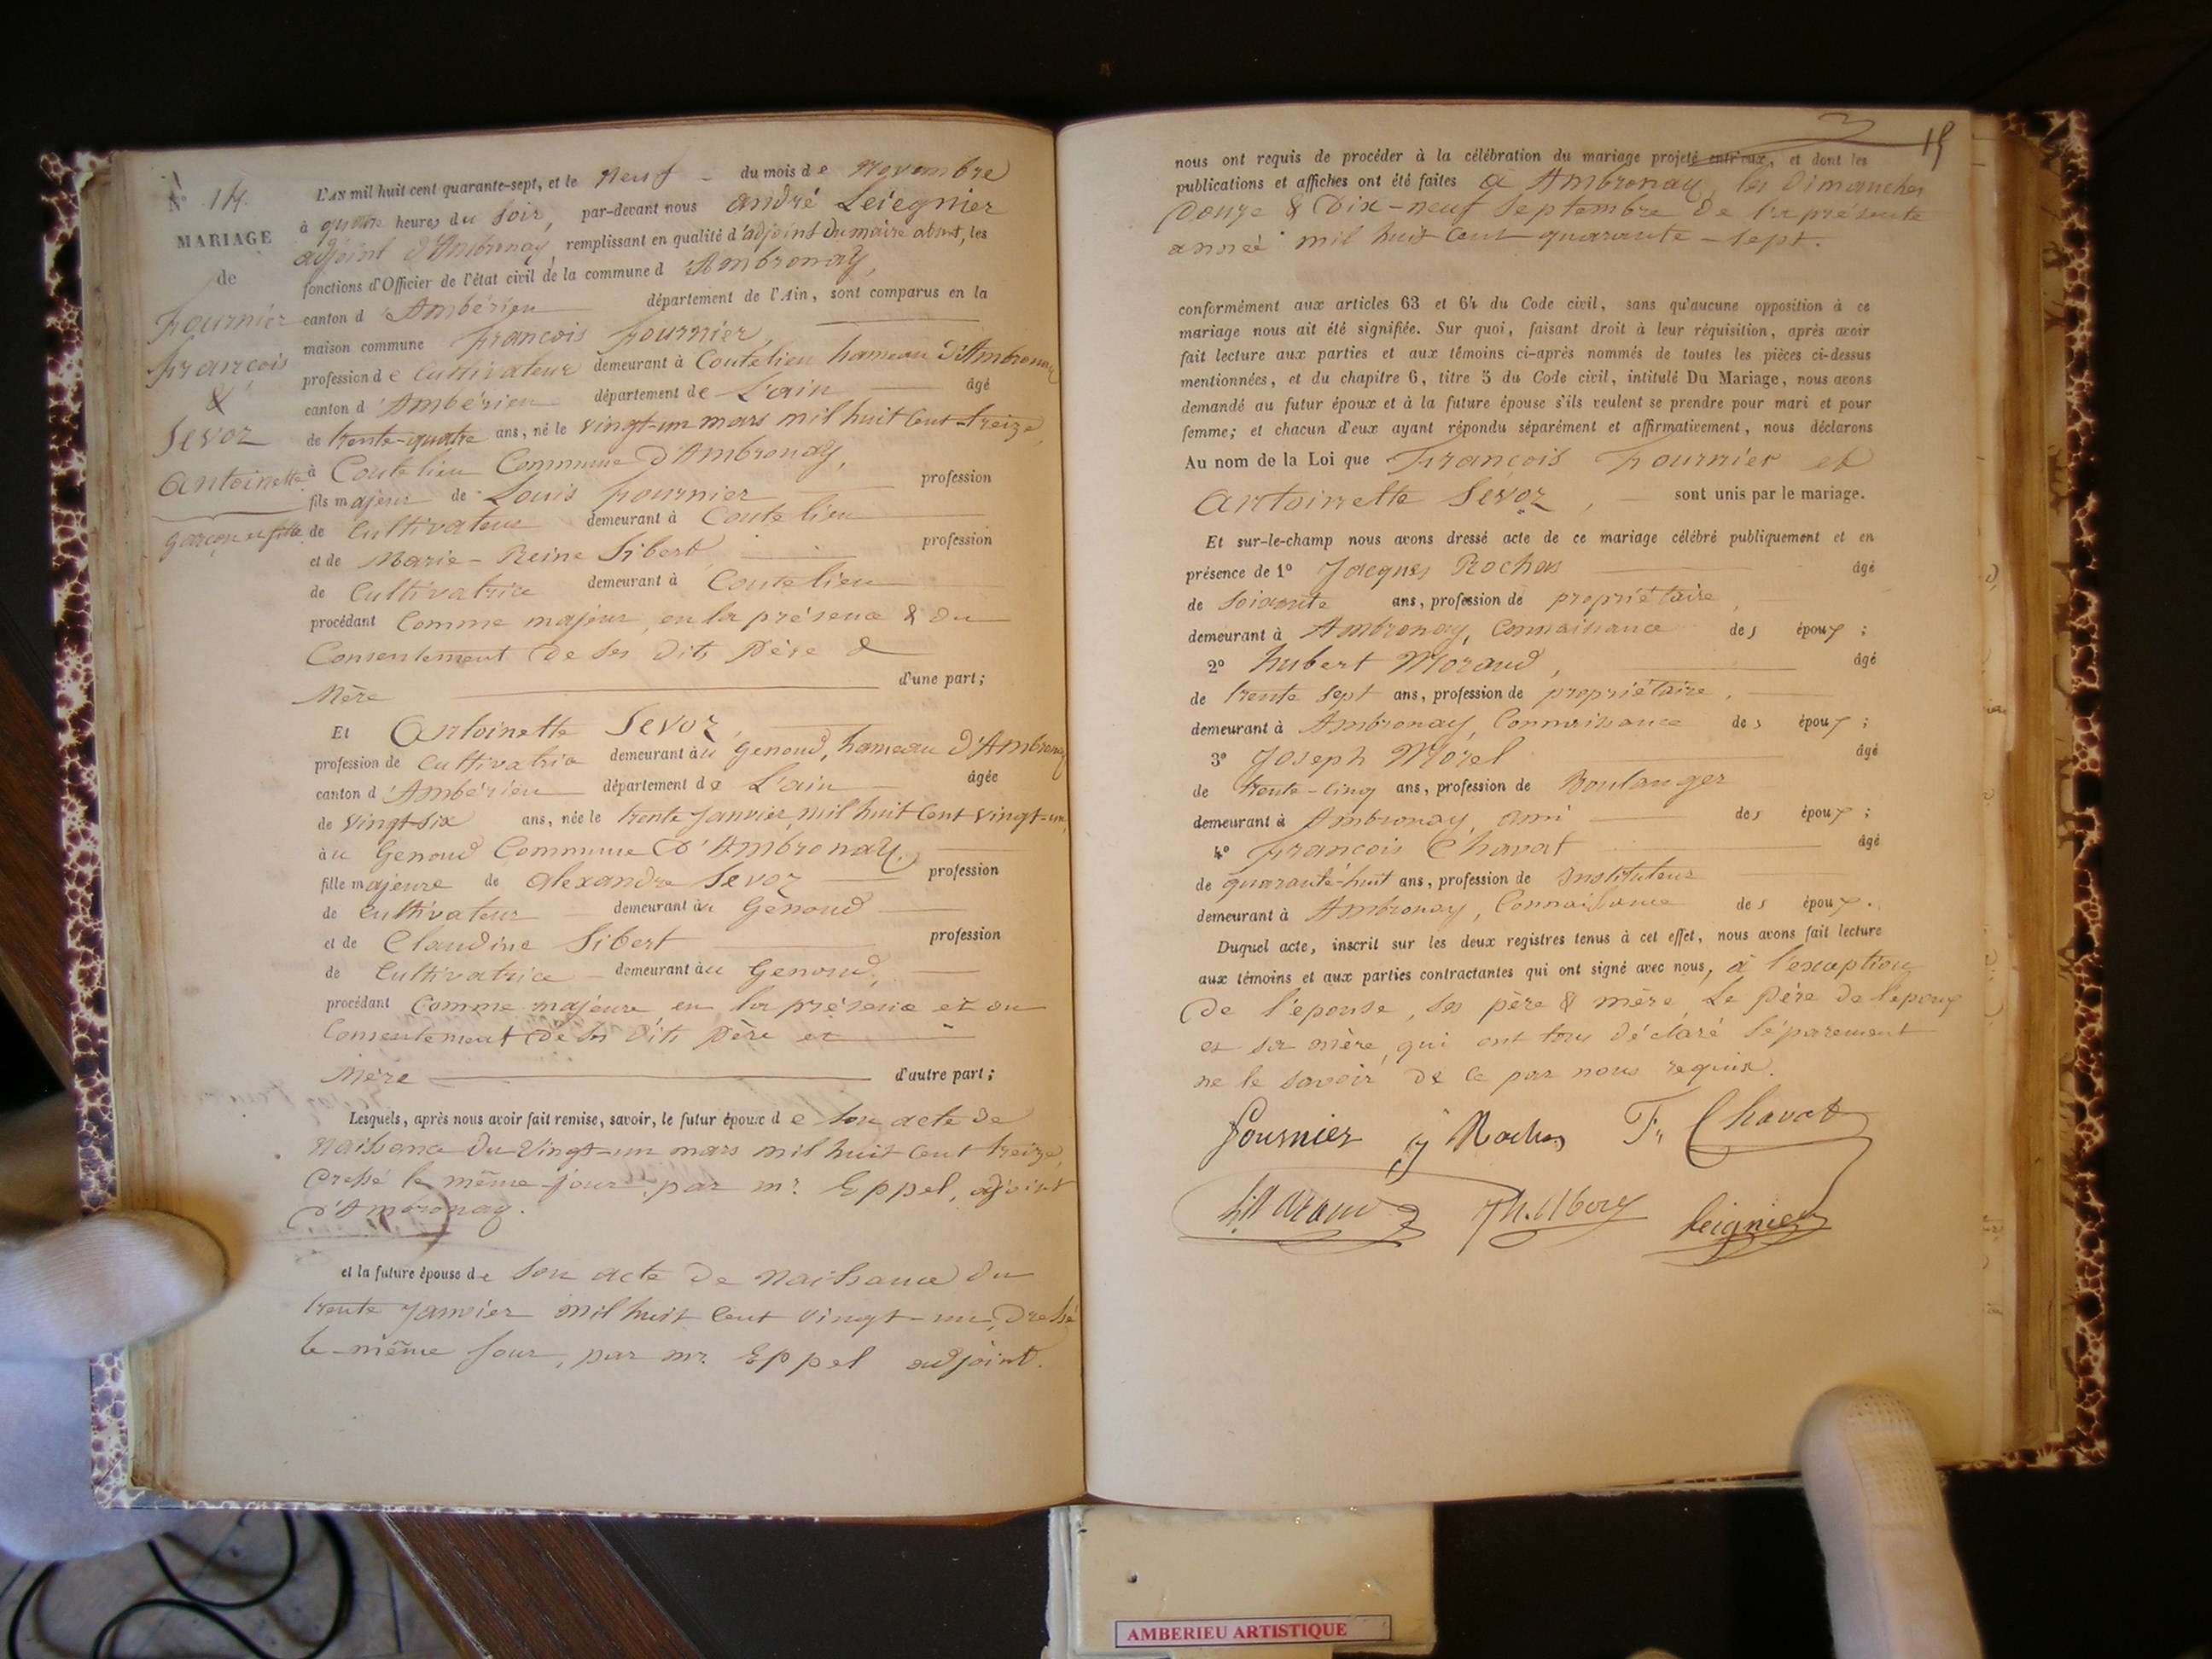 N° 14.
MARIAGE
de
Fournier
François
&
Sevoz
Antoinette
garçon et fille
L'AN mil huit cent quarante-sept, et le neuf du mois de Novembre
à quatre heures du soir, par-devant nous André Leiegnier
adjoint d'Ambronay, remplissant en qualité d'adjoint du maire absent, les
fonctions d'Officier de l'état civil de la commune d'Ambronay,
canton d'Ambérieu département de l'Ain, sont comparus en la
maison commune François Fournier,
profession de Cultivateur demeurant à Coutelieu hameau d'Ambronay
canton d'Ambérieu département de L'ain âgé
de trente-quatre ans, né le vingt-un mars mil huit Cent treize,
à Coutelieu Commune d'Ambronay,
fils majeur de Louis Fournier profession
de Cultivateur demeurant à Coutelieu
et de Marie-Reine Sibert profession
de Cultivatrice demeurant à Coutelieu
procédant Comme majeur, en la présence & du
Consentement de ses dits Père &
Mère d'une part;
Et Antoinette Sevoz,
profession de Cultivatrice demeurant au Genoud, hameau d'Ambronay
canton d'Ambérieu département de L'ain âgée
de vingt-six ans, née le trente Janvier, mil huit Cent vingt-un,
au Genoud Commune d'Ambronay,
fille majeure de Alexandre Sevoz profession
de Cultivateur demeurant au Genoud
et de Claudine Sibert profession
de Cultivatrice demeurant au Genoud,
procédant Comme majeure en la présence et du
Consentement de ses dits Père et
Mère d'autre part;
Lesquels, après nous avoir fait remise, savoir, le futur époux de son acte de
naissance du vingt-un mars mil huit Cent treize,
dressé le même jour par mr. Eppel, adjoint
d'Ambronay.
et la future épouse de son acte de naissance du
trente Janvier mil huit Cent vingt-un, Dressé
le même Jour, par mr. Eppel adjoint.
15
nous ont requis de procéder à la célébration du mariage projeté entr'eux, et dont les
publications et affiches ont été faites à Ambronay, les dimanches
Douze & Dix-neuf Septembre de la présente
année mil huit Cent quarante-sept.
conformément aux articles 63 et 64 du Code civil, sans qu'aucune opposition à ce
mariage nous ait été signifiée. Sur quoi, faisant droit à leur réquisition, après avoir
fait lecture aux parties et aux témoins ci-après nommés de toutes les pièces ci-dessus
mentionnées, et du chapitre 6, titre 5 du Code civil, intitulé Du Mariage, nous avons
demandé au futur époux et à la future épouse s'ils veulent se prendre pour mari et pour
femme; et chacun d'eux ayant répondu séparément et affirmativement, nous déclarons
Au nom de la Loi que François Fournier et
Antoinette Sevoz, sont unis par le mariage.
Et sur-le-champ nous avons dressé acte de ce mariage célébré publiquement et en
présence de 1° Jacques Rochas âgé
de Soixante ans, profession de propriétaire,
demeurant à Ambronay, Connaissance des époux;
2° hubert Moraud, âgé
de trente sept ans, profession de propriétaire,
demeurant à Ambronay, Connaissance des époux;
3° Joseph Morel âgé
de trente-cinq ans, profession de Boulanger
demeurant à Ambronay, ami des époux;
4° François Chavat âgé
de quarante-huit ans, profession de Instituteur
demeurant à Ambronay, Connaissance des époux.
Duquel acte, inscrit sur les deux registres tenus à cet effet, nous avons fait lecture
aux témoins et aux parties contractantes qui ont signé avec nous, à l'exception
De l'épouse, ses père & mère, Le Père de l'époux
et sa mère, qui ont tous déclaré séparement
ne le savoir de ce par nous requis.
Fournier J Rochas F. Chavat
Leignier
AMBERIEU ARTISTIQUE